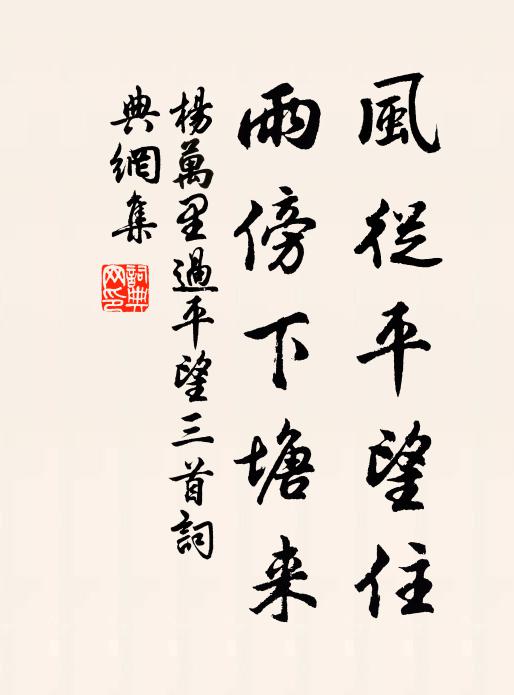 風從平望住
雨傍下塘来
楊萬里過平望三首詞
典網集
詞典網印